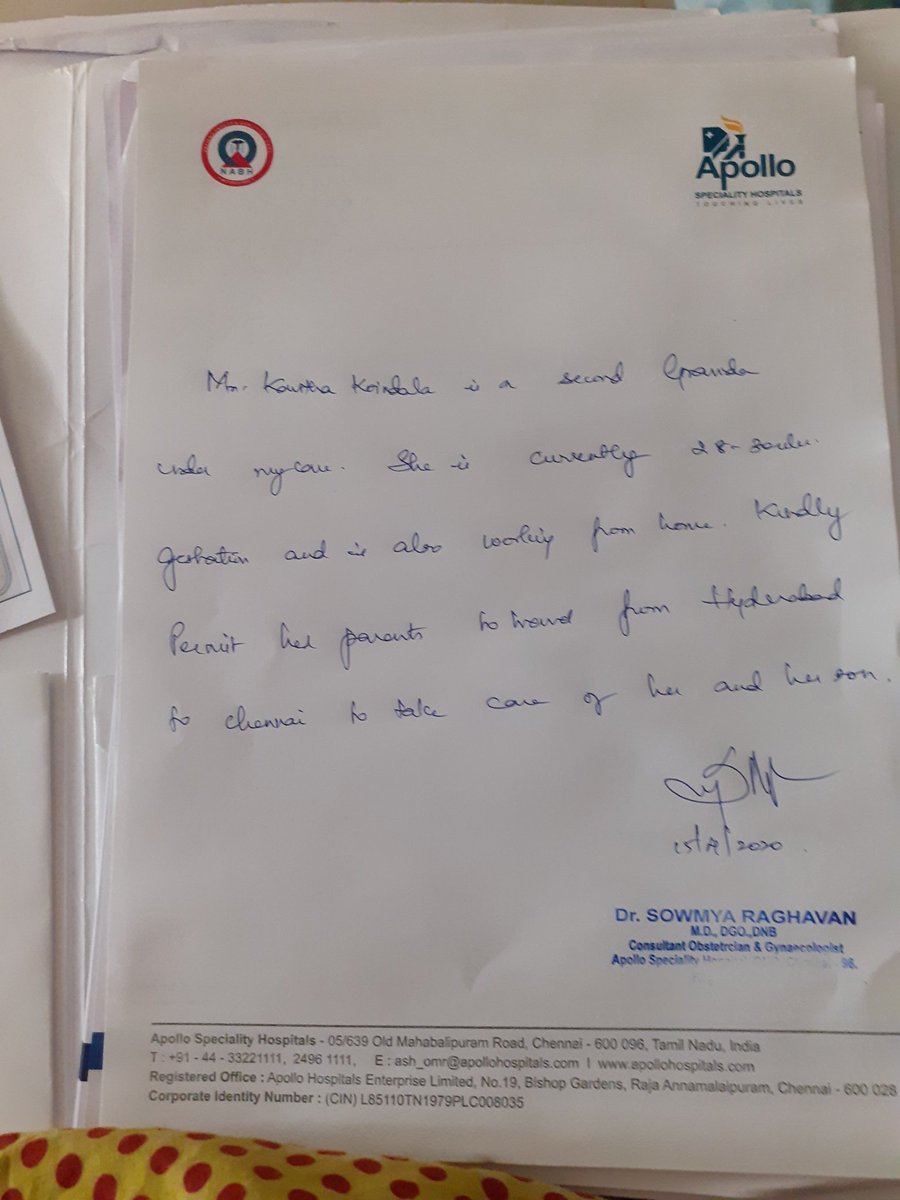 NABH
Apollo
SPECIALITY HOSPITALS
TOUCHING LIVES
is a second Gravida
under my care. She is currently 28-30wks.
gestation and is also working from home. Kindly
Permit her parents to travel from Hyderabad
to Chennai to take care of her and her son.
2020
Dr. SOWMYA RAGHAVAN
M.D., DGO.,DNB
Consultant Obstetrcian & Gynaecologist
Apollo Speciality 96.
Apollo Speciality Hospitals - 05/639 Old Mahabalipuram Road, Chennai - 600 096, Tamil Nadu, India
T : +91 - 44 - 33221111, 2496 1111, E : ash_omr@apollohospitals.com I www.apollohospitals.com
Registered Office : Apollo Hospitals Enterprise Limited, No.19, Bishop Gardens, Raja Annamalaipuram, Chennai - 600 028
Corporate Identity Number : (CIN) L85110TN1979PLC008035